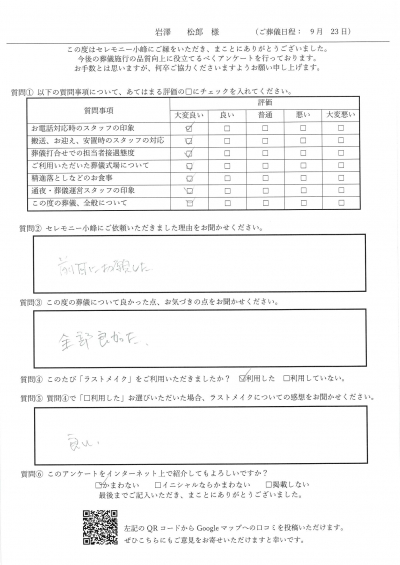 岩澤 松郎 様 (ご葬儀日程: 9月 23日)
この度はセレモニー小峰にご縁をいただき、まことにありがとうございました。
今後の葬儀施行の品質向上に役立てるべくアンケートを行っております。
お手数とは思いますが、何卒ご協力くださいますようお願い申し上げます。
質問① 以下の質問事項について、あてはまる評価の□にチェックを入れてください。
質問事項 評価
大変良い 良い 普通 悪い 大変悪い
お電話対応時のスタッフの印象 ☑ □ □ □ □
搬送、お迎え、安置時のスタッフの対応 ☑ □ □ □ □
葬儀打合せでの担当者接遇態度 ☑ □ □ □ □
ご利用いただいた葬儀式場について ☑ □ □ □ □
精進落としなどのお食事 ☑ □ □ □ □
通夜・葬儀運営スタッフの印象 ☑ □ □ □ □
この度の葬儀、全般について □ □ □ □ □
質問② セレモニー小峰にご依頼いただきました理由をお聞かせください。
前回にお願した
質問③ この度の葬儀について良かった点、お気づきの点をお聞かせください。
全部良かった、
質問④ このたび「ラストメイク」をご利用いただきましたか? ☑利用した □利用していない。
質問⑤ 質問④で「□利用した」お選びいただいた場合、ラストメイクについての感想をお聞かせください。
良い、
質問⑥ このアンケートをインターネット上で紹介してもよろしいですか?
☑かまわない □イニシャルならかまわない □掲載しない
最後までご記入いただき、まことにありがとうございました。
左記のQRコードからGoogleマップへの口コミを投稿いただけます。
ぜひこちらにもご意見をお寄せいただけますと幸いです。